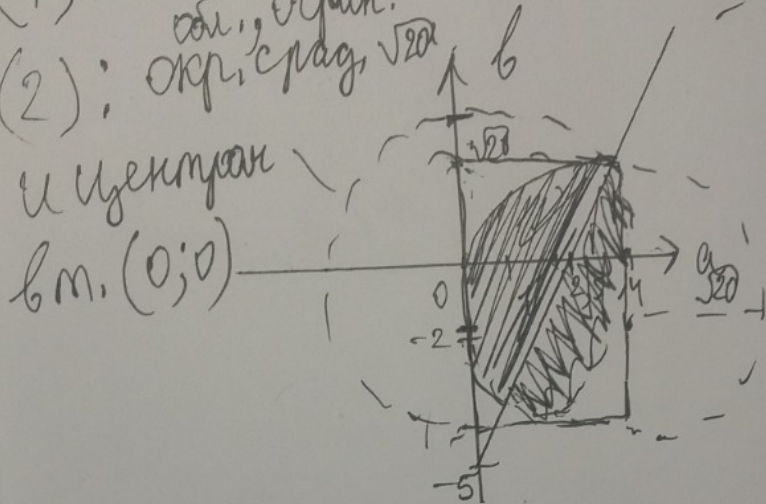 обл., огран.
(2): окр. с рад. √20
и центром
в т. (0;0)
b
√20
0
2
4
a
√20
-2
-5